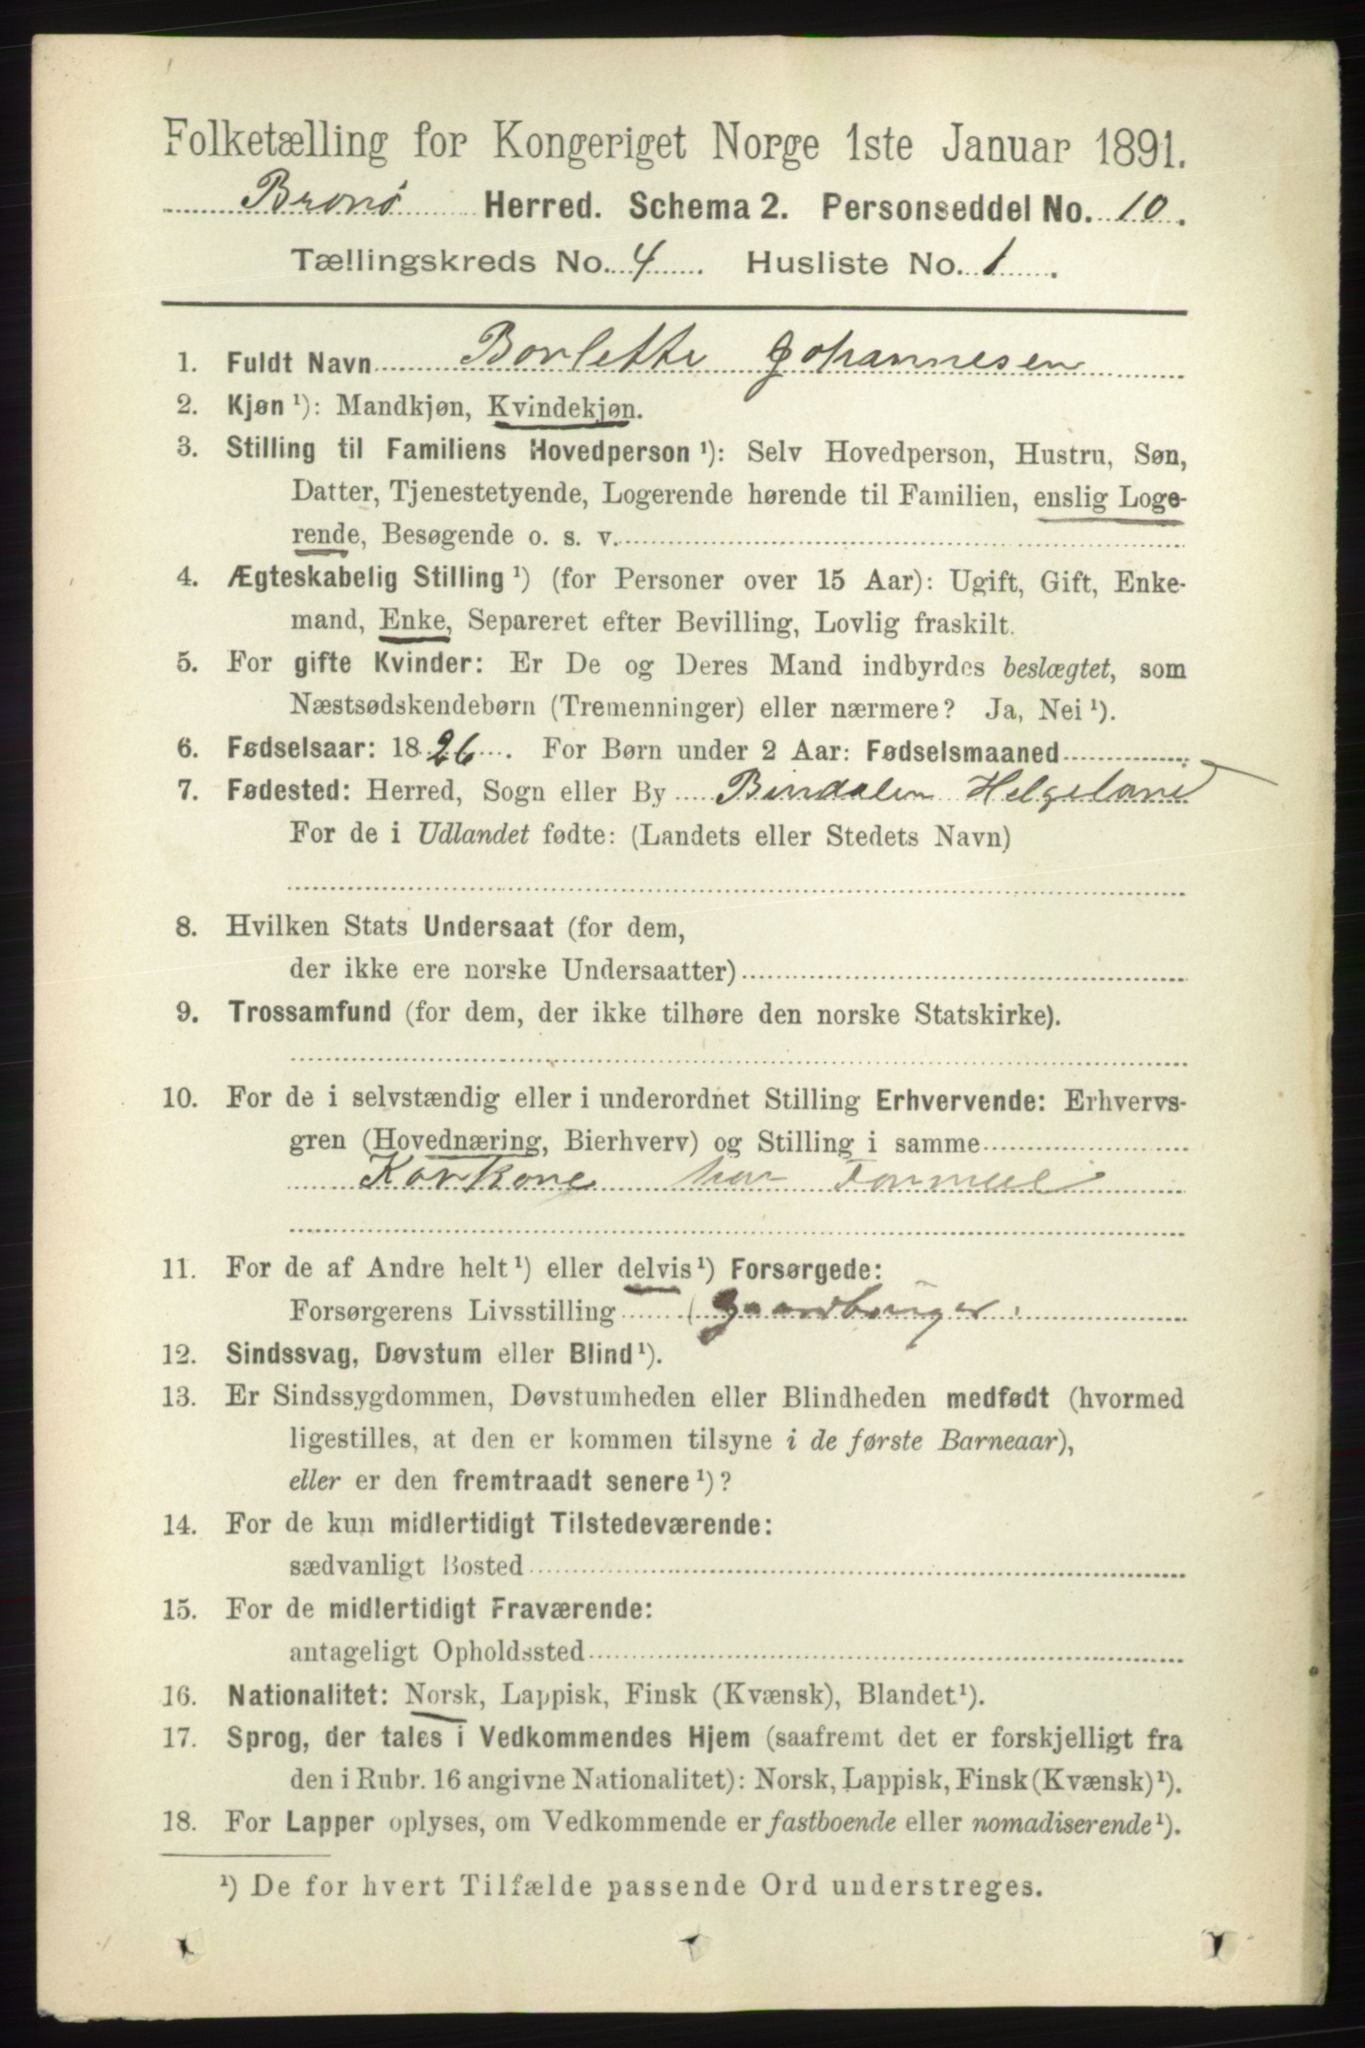 Folketælling for Kongeriget Norge 1ste Januar 1891.
Brønø Herred. Schema 2. Personseddel No. 10.
Tællingskreds No. 4 Husliste No. 1.
1. Fuldt Navn Borlette Johannesen
2. Kjøn ¹): Mandkjøn, Kvindekjøn.
3. Stilling til Familiens Hovedperson ¹): Selv Hovedperson, Hustru, Søn,
Datter, Tjenestetyende, Logerende hørende til Familien, enslig Loge-
rende, Besøgende o. s. v.
4. Ægteskabelig Stilling ¹) (for Personer over 15 Aar): Ugift, Gift, Enke-
mand, Enke, Separeret efter Bevilling, Lovlig fraskilt.
5. For gifte Kvinder: Er De og Deres Mand indbyrdes beslægtet, som
Næstsødskendebørn (Tremenninger) eller nærmere? Ja, Nei ¹).
6. Fødselsaar: 1826. For Børn under 2 Aar: Fødselsmaaned
7. Fødested: Herred, Sogn eller By Bindalen Helgeland
For de i Udlandet fødte: (Landets eller Stedets Navn)
8. Hvilken Stats Undersaat (for dem,
der ikke ere norske Undersaatter)
9. Trossamfund (for dem, der ikke tilhøre den norske Statskirke).
10. For de i selvstændig eller i underordnet Stilling Erhvervende: Erhvervs-
gren (Hovednæring, Bierhverv) og Stilling i samme
Karkone har
11. For de af Andre helt ¹) eller delvis ¹) Forsørgede:
Forsørgerens Livsstilling (Gaardbruger.
12. Sindssvag, Døvstum eller Blind ¹).
13. Er Sindssygdommen, Døvstumheden eller Blindheden medfødt (hvormed
ligestilles, at den er kommen tilsyne i de første Barneaar),
eller er den fremtraadt senere ¹)?
14. For de kun midlertidigt Tilstedeværende:
sædvanligt Bosted
15. For de midlertidigt Fraværende:
antageligt Opholdssted
16. Nationalitet: Norsk, Lappisk, Finsk (Kvænsk), Blandet ¹).
17. Sprog, der tales i Vedkommendes Hjem (saafremt det er forskjelligt fra
den i Rubr. 16 angivne Nationalitet): Norsk, Lappisk, Finsk (Kvænsk) ¹).
18. For Lapper oplyses, om Vedkommende er fastboende eller nomadiserende ¹).
¹) De for hvert Tilfælde passende Ord understreges.